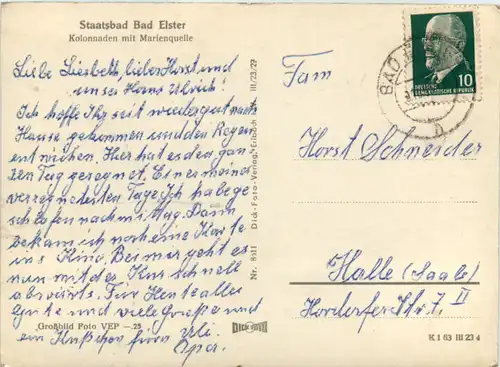 Staatsbad Bad Elster
Kolonnaden mit Marienquelle
Liebe Liesbeth, lieber Horst und
unser Hans Ulrich!
Ich hoffe Ihr seit wieder gut nach
Hause gekommen und den Regen
entwichen. Hier hat es den gan-
zen Tag geregnet. Eines meiner
verregnetesten Tage. Ich habe ge-
schlafen nachmittag. Dann
bekam ich noch eine Karte
ins Kino. Bei mir geht es
nun mit der Kur schnell
abwärts. Für Heute alles
Gute und viele Grüße und
ein Küßchen für Uli.
Opa.
Großbild Foto VEP —.25
DICK FOTO
Nr. 8111 Dick-Foto-Verlag, Erlbach III/23/27
BAD
DEUTSCHE
DEMOKRATISCHE REPUBLIK
10
Fam
Horst Schneider
Halle (Saale)
Str. 7 II
K 1 63 III 23 4